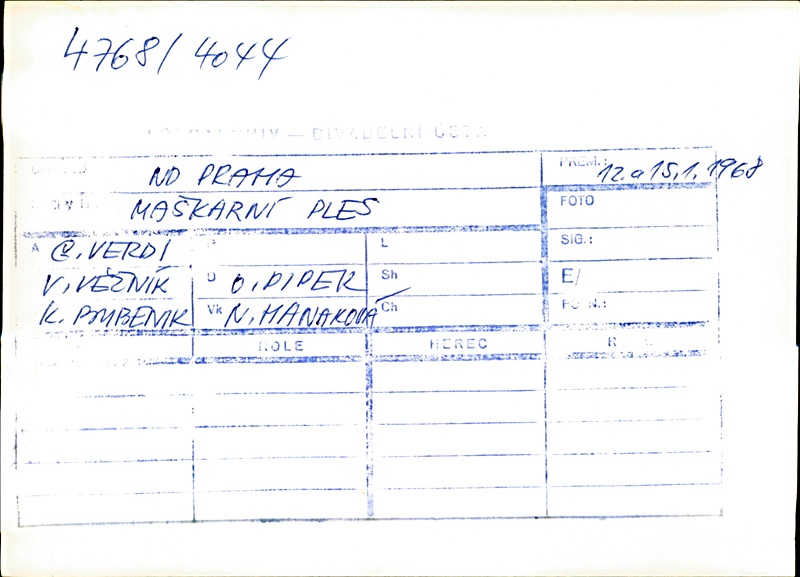 4768/4044
— DIVADELNÍ ÚSTAV
ND PRAHA
PREM.: 12. a 15. 1. 1968
MAŠKARNÍ PLES
FOTO
A G. VERDI
L
SIG.:
V. VĚŽNÍK
D O. PIPER
Sh
E/
K. BUBENIK
Vk N. HANÁKOVÁ
Ch
ROLE HEREC